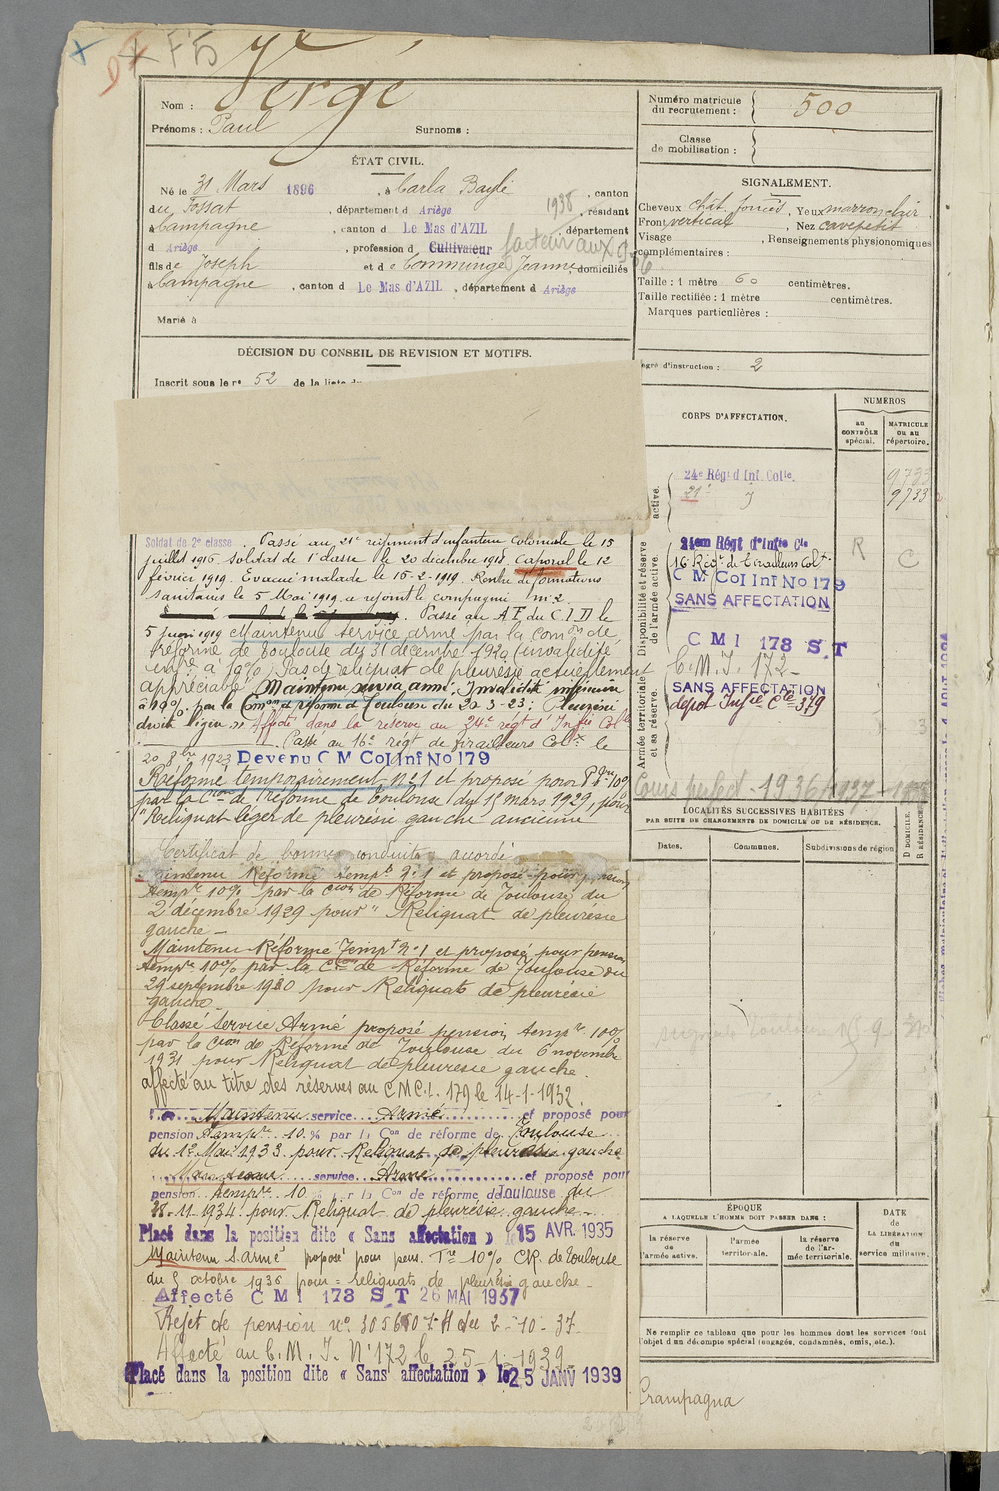 F5
Nom : Vergé
Prénoms : Paul Surnoms :
ÉTAT CIVIL.
Né le 31 Mars 1896, à Carla Bayle, canton
du Fossat, département d Ariège 1938, résidant
à Campagne, canton d Le Mas d'AZIL, département
d Ariège, profession d Cultivateur facteur aux
fils de Joseph et de Commenge Jeanne, domiciliés
à Campagne, canton d Le Mas d'AZIL, département d Ariège
Marié à
DÉCISION DU CONSEIL DE REVISION ET MOTIFS.
Inscrit sous le n° 52 de la liste du
Soldat de 2e classe. Passé au 21e régiment d'infanterie Coloniale le 15
juillet 1916 soldat de 1e classe le 20 décembre 1918. Caporal le 12
février 1919. Evacué malade le 15-2-1919. Rentré de formations
sanitaires le 5 Mai 1919 a rejoint la compagnie m. 2.
Passé au A.F. du C.I.D le
5 juin 1919 Maintenu service armé par la Comon de
réforme de Toulouse du 31 décembre 1920 (invalidité
infre à 10%) Pas de reliquat de pleurésie actuellement
appréciable. Maintenu service armé; Invalidité inférieure
à 10%. par la Comon de réforme de Toulouse du 20-3-23: Pleurésie
droite légère. Affecté dans la réserve au 24e régt d'Infie Colle
Passé au 16e régt de Tirailleurs Colx le
20 8bre 1923 Devenu C M Col Inf No 179
Réformé temporairement n°1 et proposé pour P. Tre 10%
par la Cion de Réforme de Toulouse du 15 mars 1929, pour
"Reliquat léger de pleurésie gauche ancienne"
Certificat de bonne conduite accordé
Maintenu Réformé tempt n°1 et proposé pour pension
tempre 10% par la Cion de Réforme de Toulouse du
2 décembre 1929 pour "Reliquat de pleurésie
gauche -
Maintenu Réformé Tempt n°1 et proposé pour pension
tempre 10% par la Cion de Réforme de Toulouse du
29 septembre 1930 pour Reliquats de pleurésie
gauche
Classé Service Armé proposé pension tempre 10%
par la Cion de Réforme de Toulouse du 6 novembre
1931 pour Reliquat de pleurésie gauche.
affecté au titre des réserves au C.M.C.I. 179 le 14-1-1932.
Maintenu service Armé et proposé pour
pension Tempre 10 % par la Con de réforme de Toulouse
du 12 Mai 1933 pour Reliquat de pleurésie gauche
Maintenu service Armé et proposé pour
pension tempre 10 % par la Con de réforme de Toulouse du
28-11-1934 pour Reliquat de pleurésie gauche -
Placé dans la position dite « Sans affectation » le 15 AVR. 1935
Maintenu S. armé proposé pour pens. Tre 10% C.R. de Toulouse
du 5 octobre 1936 pour = reliquats de pleurésie gauche -
Affecté C M I 173 S.T 26 MAI 1937
Rejet de pension n° 305660 7 H du 2-10-37
Affecté au C.M.I. N°172 le 25-1-1939
Placé dans la position dite « Sans affectation » le 25 JANV 1939
Numéro matricule
du recrutement : 500
Classe
de mobilisation :
SIGNALEMENT.
Cheveux chât. foncés, Yeux marron clair
Front vertical, Nez cave petit
Visage , Renseignements physionomiques
complémentaires :
Taille : 1 mètre 60 centimètres.
Taille rectifiée : 1 mètre centimètres.
Marques particulières :
egré d'instruction : 2
CORPS D'AFFECTATION.
NUMÉROS
au CONTRÔLE spécial.
MATRICULE ou au répertoire.
active.
24e Régt d Inf. Colle. 9733
21e 9733
Disponibilité et réserve de l'armée active.
21em Régt d'Infie Cle
16 Régt de Tirailleurs Colx R C
C M Col Inf No 179
SANS AFFECTATION
Armée territoriale et sa réserve.
C M I 173 S.T
C.M.I. 172-
SANS AFFECTATION
dépôt Infie Cle 379
Cours perfect - 1936/1937
LOCALITÉS SUCCESSIVES HABITÉES
PAR SUITE DE CHANGEMENTS DE DOMICILE OU DE RÉSIDENCE.
Dates. Communes. Subdivisions de région D DOMICILE. R RÉSIDENCE.
ÉPOQUE
A LAQUELLE L'HOMME DOIT PASSER DANS :
DATE de LA LIBÉRATION du service militaire.
la réserve de l'armée active.
l'armée territoriale.
la réserve de l'armée territoriale.
Ne remplir ce tableau que pour les hommes dont les services font
l'objet d'un décompte spécial (engagés, condamnés, omis, etc.).
Crampagna